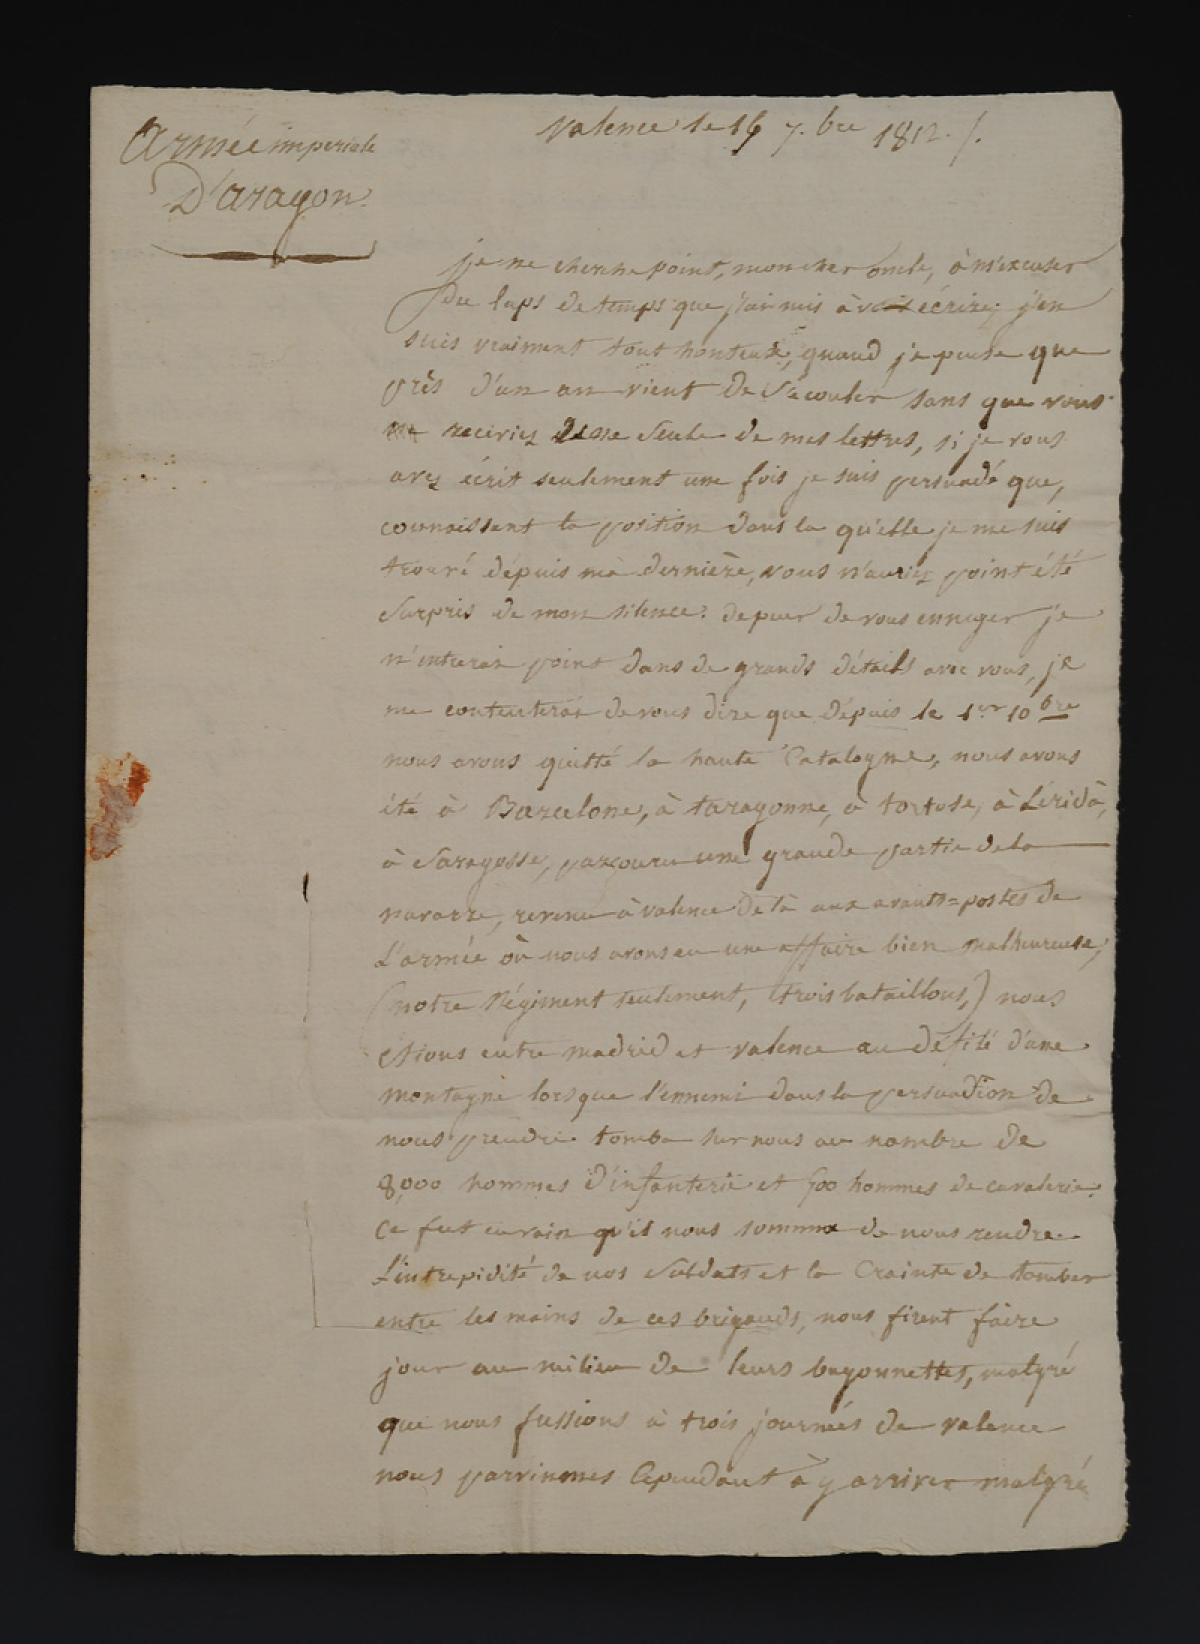 Armée imperiale
D'aragon.
Valence le 16 7.bre 1812 ./.
je ne cherche point, mon cher oncle, à m'excuser
Du laps de temps que j'ai mis à écrire; j'en
suis vraiment tout honteux, quand je pense que
près d'un an vient de s'écouler sans que vous
receviez une seule de mes lettres, si je vous
avez écrit seulement une fois je suis persuadé que,
connaissent la position dans la qu'elle je me suis
trouvé dépuis mà dernière, vous n'auriez point été
surpris de mon silence. de peur de vous ennuyer je
n'entrerai point dans de grands détails avec vous, je
me contenterai de vous dire que dépuis le 1er 10bre
nous avons quitté la haute Catalogne, nous avons
été à Barcelone, à taragonne, à tortose, à Léridà,
à Saragosse, parcouru une grande partie de la
navarre, revenu à valence de là aux avants=postes de
L'armée où nous avons eu une affaire bien malheureuse,
(notre Régiment seulement, trois bataillons,) nous
étions entre madrid et valence au défilé d'une
montagne lorsque l'ennemi dans la persuadion de
nous prendre tomba sur nous au nombre de
8,000 hommes d'infanterie et 500 hommes de cavalerie.
Ce fut en vain qu'il nous somma de nous rendre.
L'intrepidité de nos Soldats et la Crainte de tomber
entre les mains de ces brigands, nous firent faire
jour au milieu de leurs bayonnettes, malgré
que nous fussions à trois journées de valence
nous parvinmes Cependant à y arriver malgré